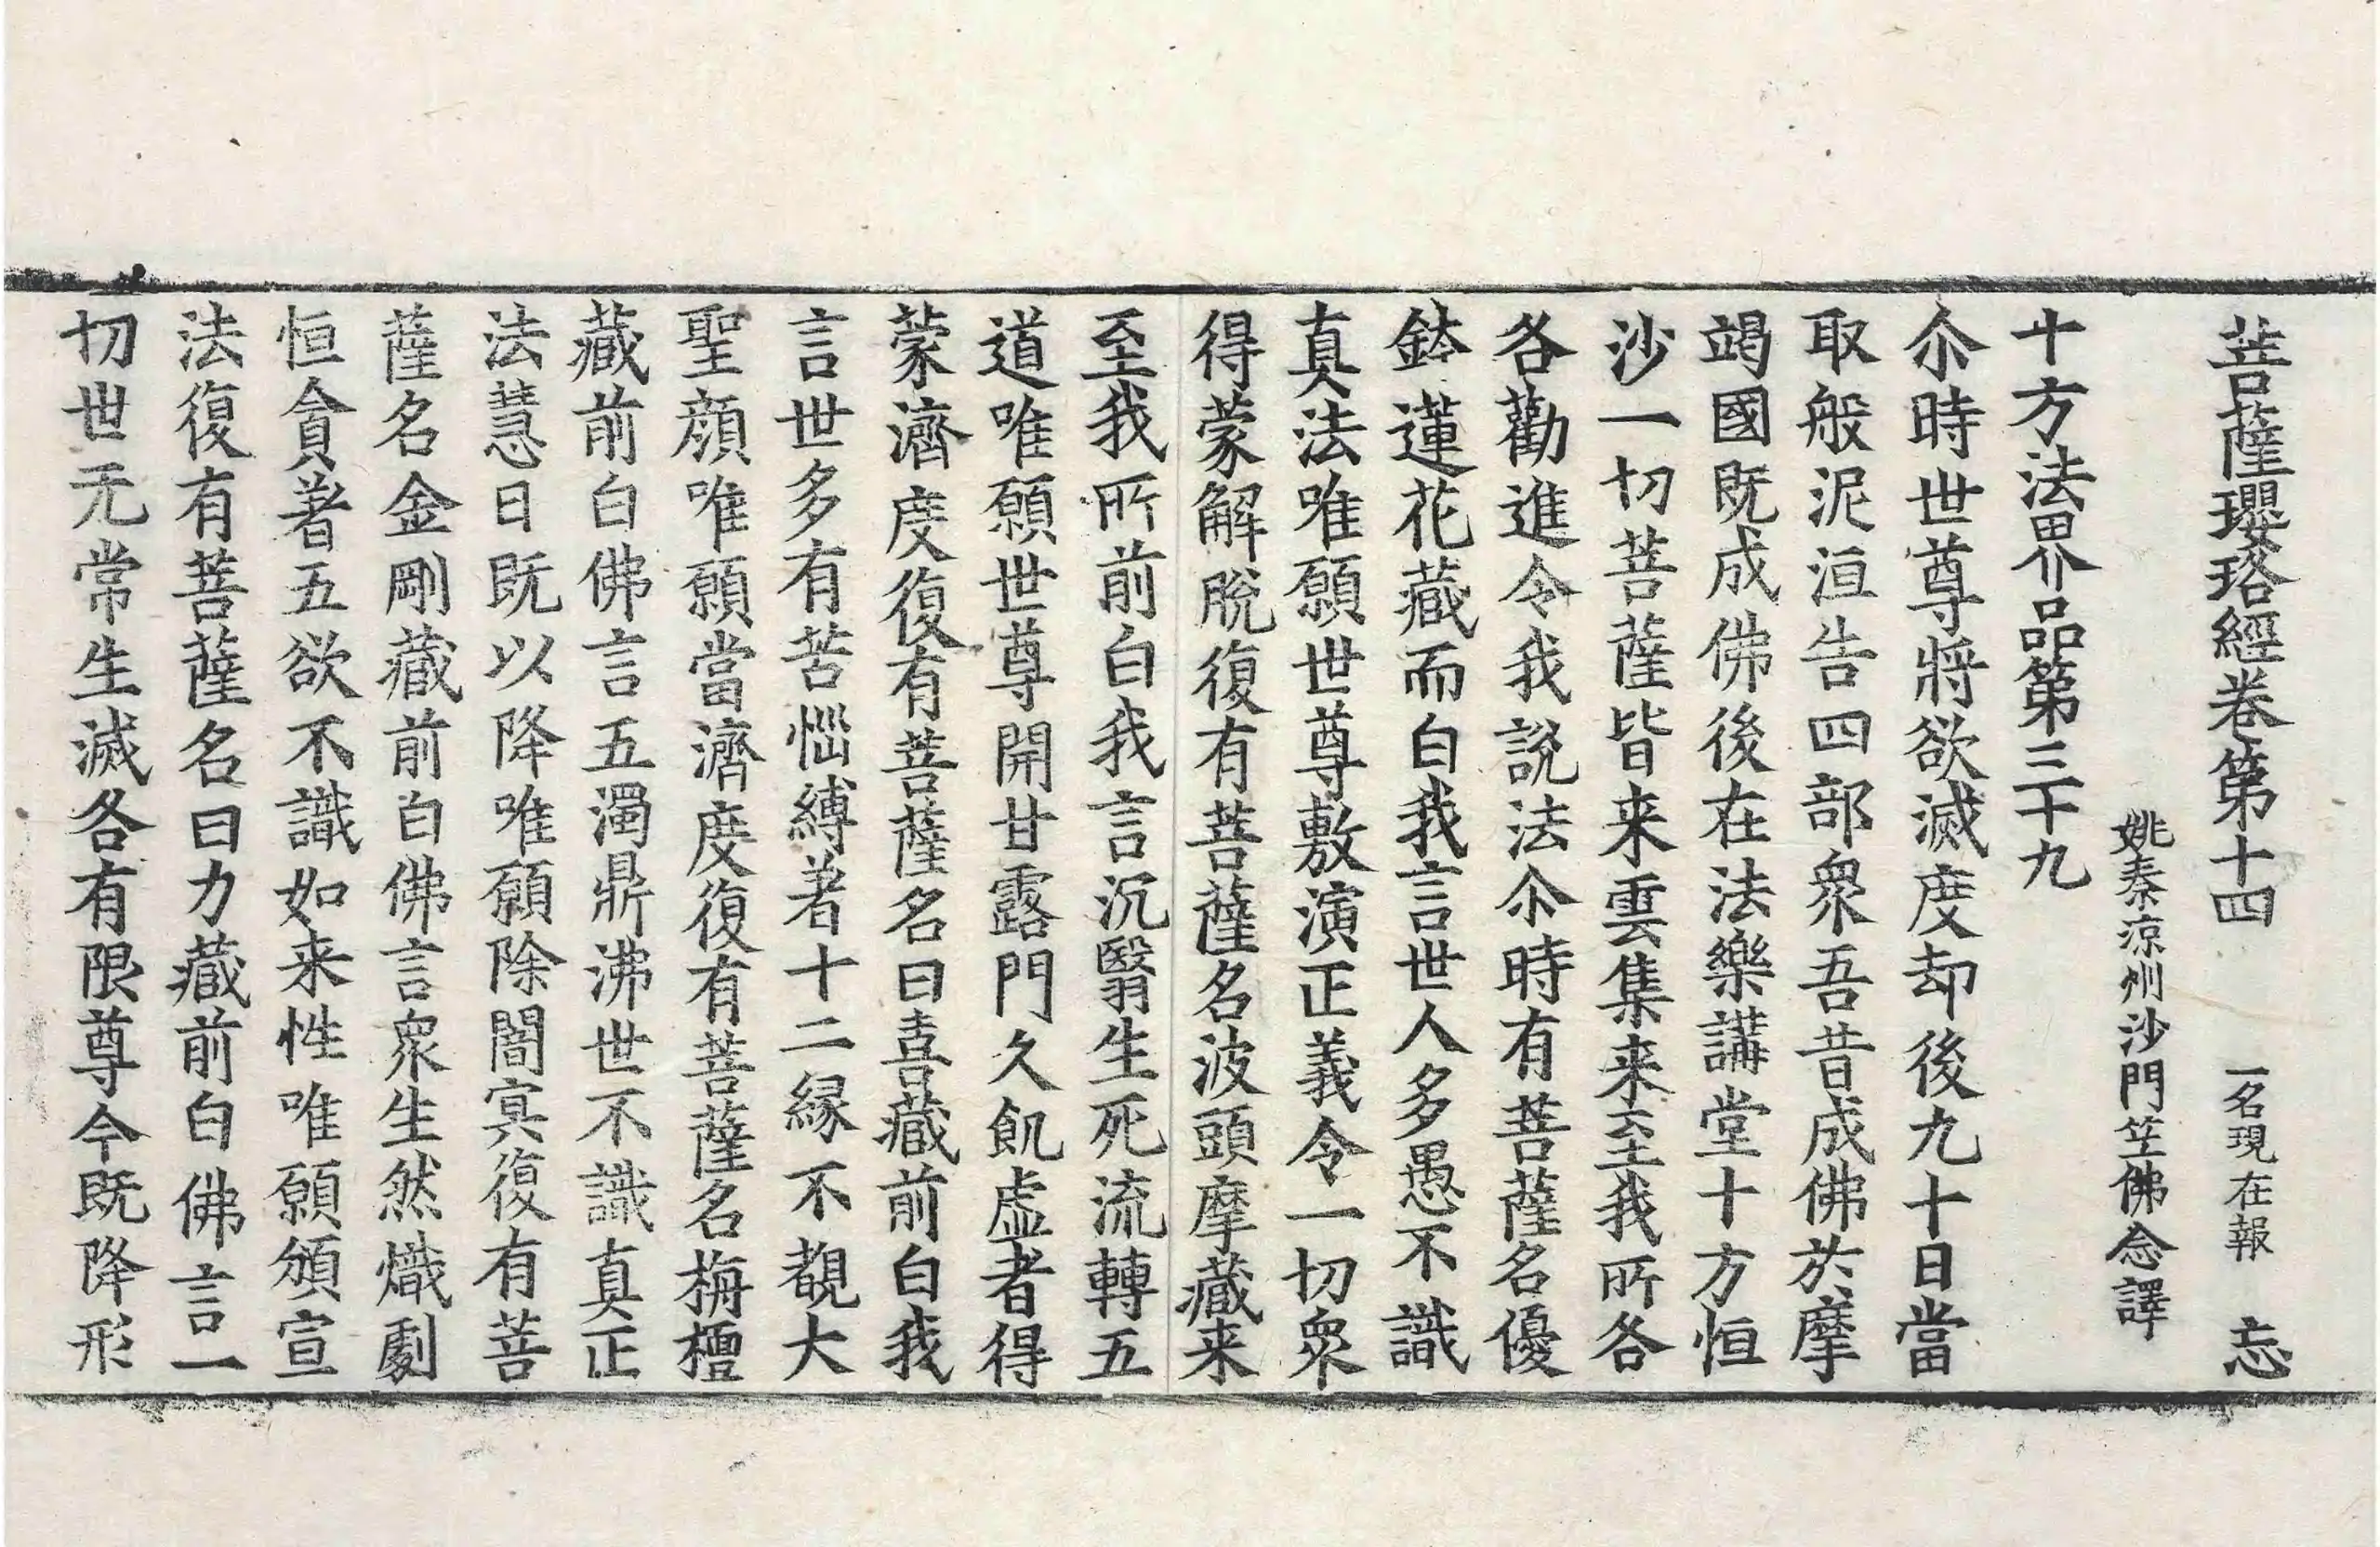 菩薩瓔珞經卷第十四 一名現在報 忘
姚秦涼州沙門笁佛念譯
十方法界品第三十九
尒時世尊將欲滅度却後九十日當
取般泥洹告四部衆吾昔成佛於摩
竭國既成佛後在法樂講堂十方恒
沙一切菩薩皆来雲集来至我所各
各勸進令我說法尒時有菩薩名優
鉢蓮花藏而白我言世人多愚不識
真法唯願世尊敷演正義令一切衆
得蒙解脫復有菩薩名波頭摩藏来
至我所前白我言沉翳生死流轉五
道唯願世尊開甘露門久飢虛者得
蒙濟度復有菩薩名曰喜藏前白我
言世多有苦惱縛著十二緣不覩大
聖顏唯願當濟度復有菩薩名栴檀
藏前白佛言五濁鼎沸世不識真正
法慧日既以降唯願除闇冥復有菩
薩名金剛藏前白佛言衆生然熾劇
恒貪著五欲不識如来性唯願頒宣
法復有菩薩名曰力藏前白佛言一
切世无常生滅各有限尊今既降形